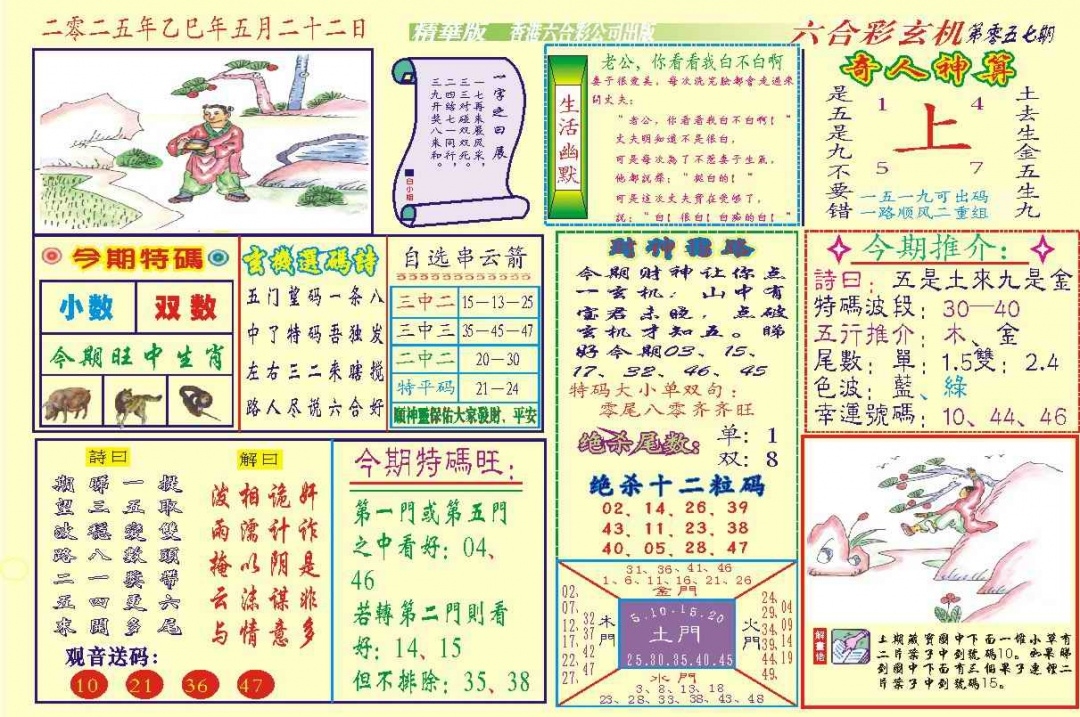 二零二五年乙巳年五月二十二日
精華版 香港六合彩公司出版
六合彩玄机 第零五七期
一字之曰展
一七再來展风采,
二三对双双死,
三四结碰一行,
二九开奖七八同来和。
白小姐
生活幽默
老公，你看看我白不白啊
妻子很爱美，每次洗完脸都会走过来
问丈夫：
"老公，你看看我白不白啊！"
丈夫明知道不是很白，
可是每次為了不惹妻子生氣，
他都説聲："挺白的！"
可是這次丈夫實在受够了，
説："白！很白！白痴的白！"
奇人神算
是五是九不要错
1 4
上
5 7
土去生金五生九
一五一九可出码
一路顺风二重组
今期特碼
小数 双数
今期旺中生肖
玄機選碼詩
五门望码一条八
中了特码吾独发
左右三二来瞎搅
路人尽说六合好
自选串云箭
三中二 15—13—25
三中三 35—45—47
二中二 20—30
特平码 21—24
順神靈保佑大家發財、平安
財神指路
今期财神让你点
一玄机：山中有
宝君未晓，点破
玄机才知五。睇
好今期03、15、
17、32、46、45
特码大小单双句：
零尾八零齐齐旺
绝杀尾数：
单：1
双：8
绝杀十二粒码
02、14、26、39
43、11、23、38
40、05、28、47
今期推介：
詩曰：五是土來九是金
特碼波段：30—40
五行推介：木、金
尾數：單：1.5雙：2.4
色波：藍、綠
幸運號碼：10、44、46
詩曰
期望波路二五來
睇三穩八一四開
一五變數獎更多
投取雙頭帶六尾
解曰
波雨掩云与
相濡以沫情
诡计阴谋意
奸诈是非多
观音送码：
10 21 36 47
今期特碼旺：
第一門或第五門
之中看好：04、
46
若轉第二門則看
好：14、15
但不排除：35、38
31、36、41、46
1、6、11、16、21、26
金門
02、
07、
12、
17、
22、
27、
32
37
42
47
木門
5.10.15.20
土門
25.30.35.40.45
火門
24、
29、
34、
39、
44、
49、
04
09
14
19
水門
3、8、13、18
23、28、33、38、43、48
解畫佬
上期藏寶圖中下面一堆小草有
二片葉子中到號碼10。如果睇
到圖中下面有三個果子連埋二
片葉子中到號碼15。